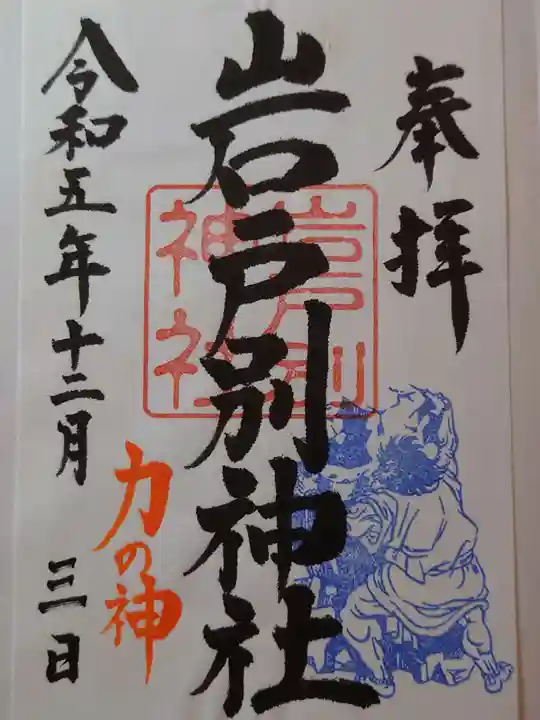 奉拝
岩戸別神社
岩戸別
神社
力の神
令和五年十二月 三日